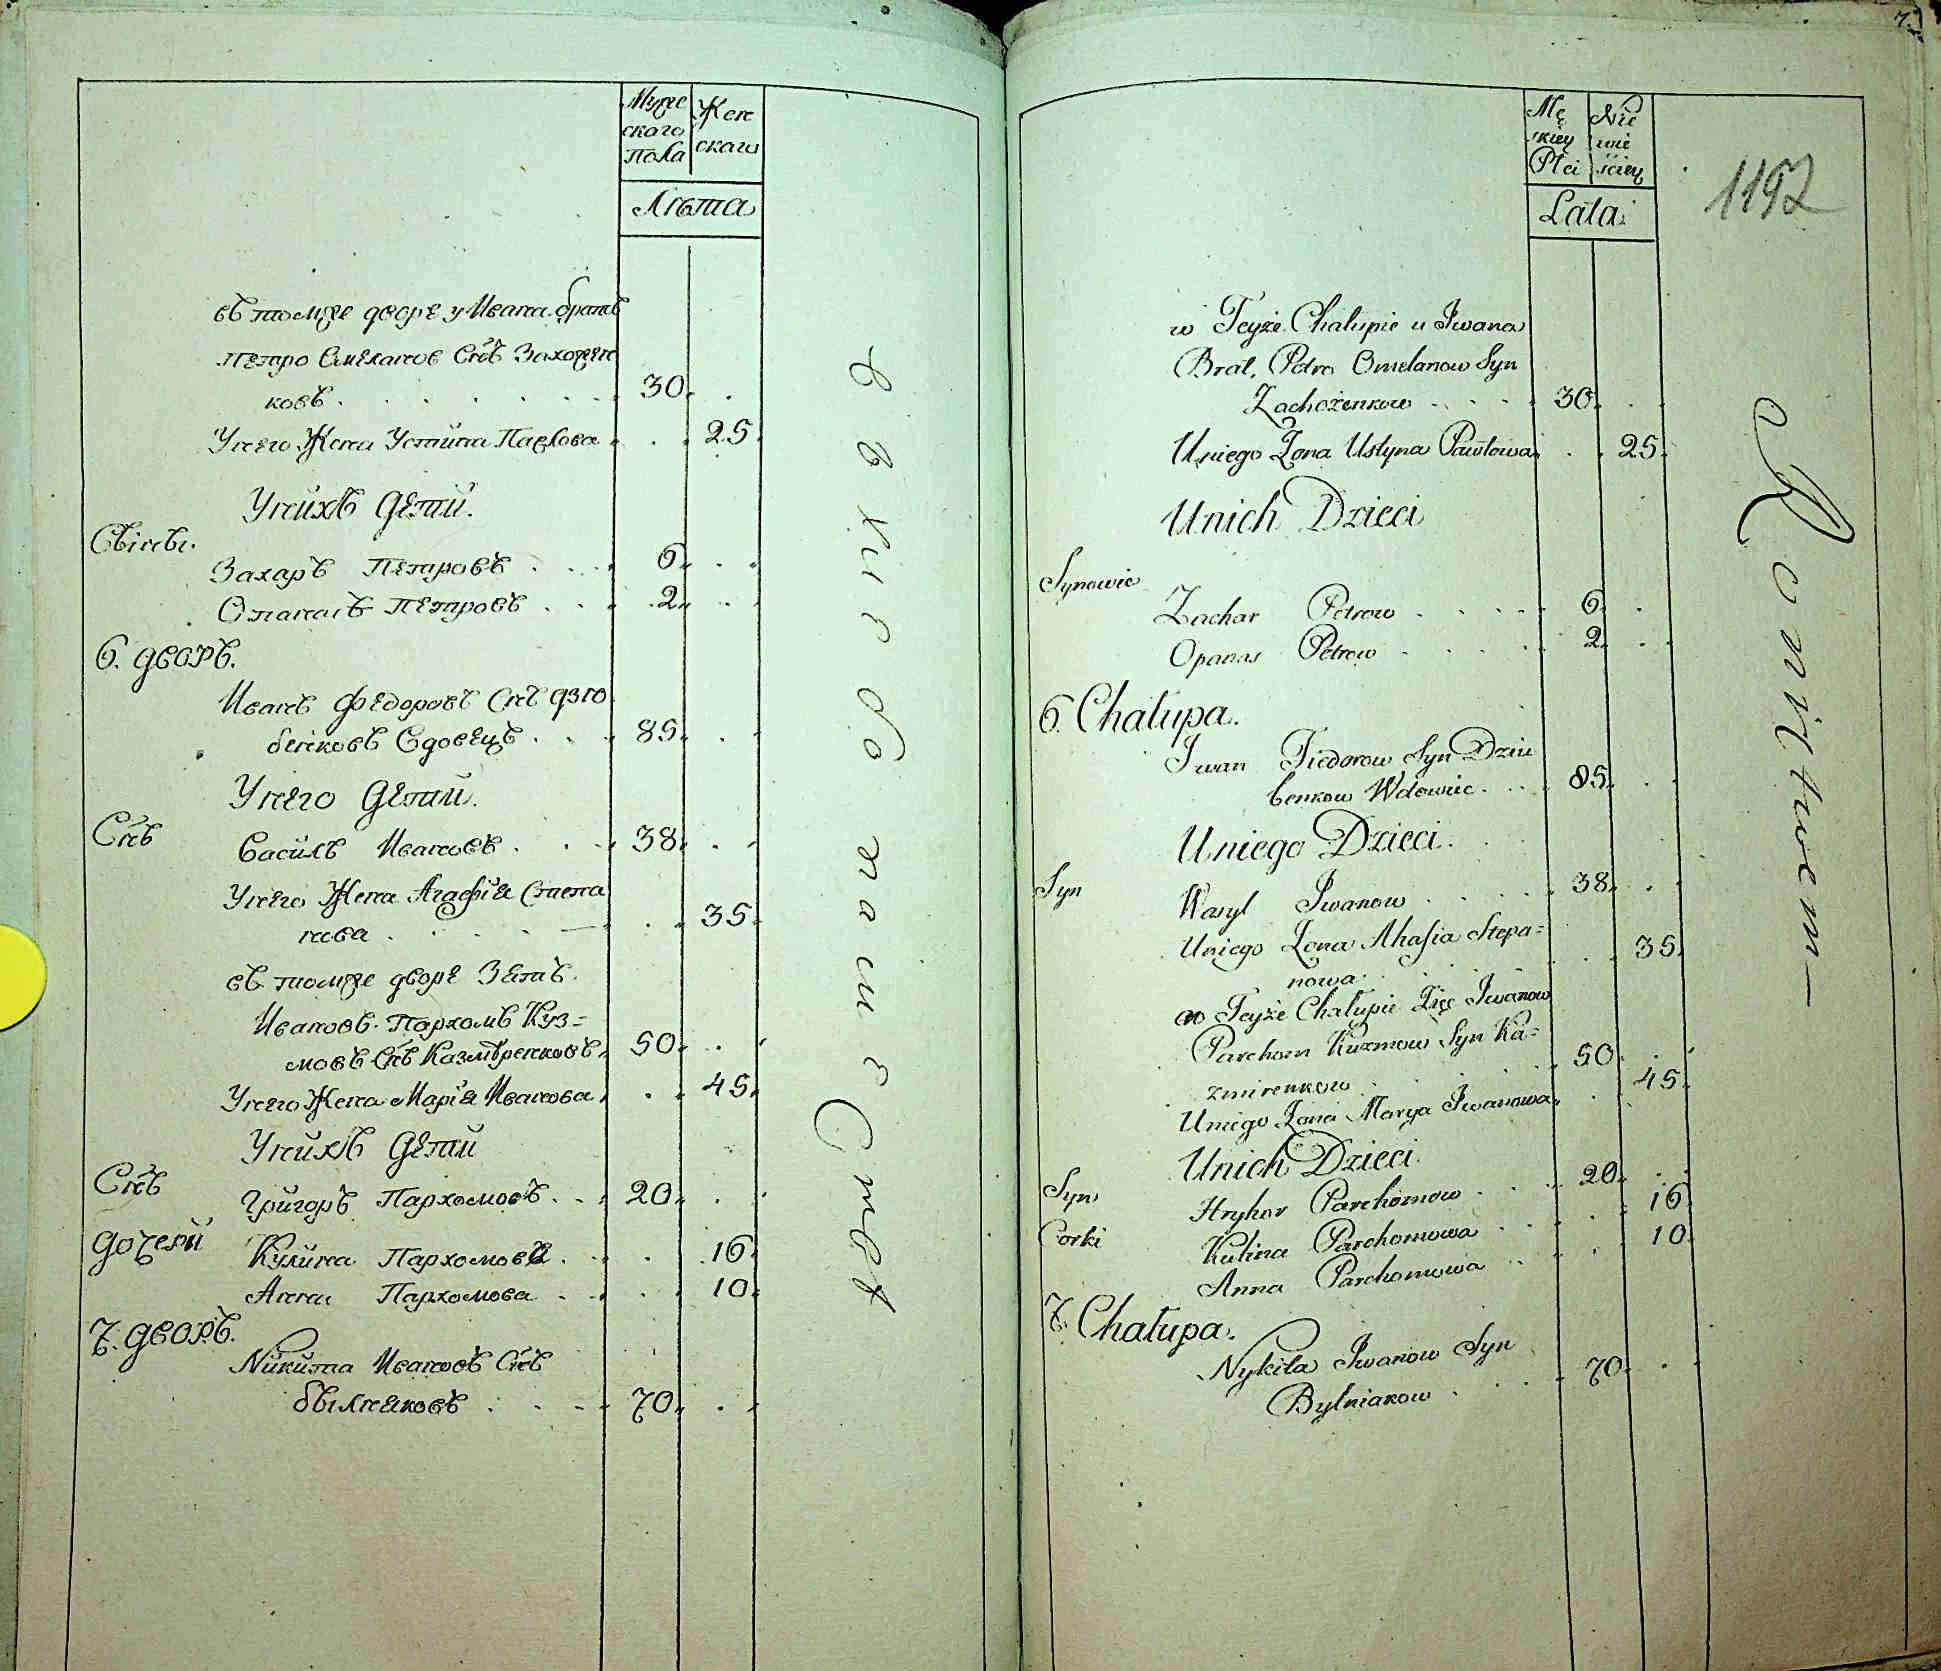 Муже Жен
ского скаго
пола
Лѣта
въ томже дворе у Ивана братъ
Петро Омеланов Снъ Захожен
ковъ 30
У него Жена Устина Павлова 25
У нихъ Дети.
Сынъ.
Захаръ Петровъ 6
Опанасъ Петровъ 2
6. дворъ.
Иванъ Федоровъ Снъ Дзю
бенковъ Вдовецъ 85
У него Дети.
Снъ Василъ Ивановъ 38
У него Жена Агафия Степа
нова 35
въ томже дворе Зеть
Ивановъ Пархомъ Куз=
мовъ Снъ Казмѣренковъ 50
У него Жена Мария Иванова 45
У нихъ Дети
Снъ Григоръ Пархомовъ 20
Дочери Кулина Пархомова 16
Анна Пархомова 10
7. дворъ.
Никита Ивановъ Снъ
Былнековъ 70
7.
Mę Nie
skiey wie
Płci sciey
Lata
1192
w Teyże Chałupie u Iwana
Brat, Petro Omelanow Syn
Zachożenkow 30
U niego Żona Ustyna Pawłowa 25
U nich Dzieci
Synowie
Zachar Petrow 6
Opanas Petrow 2
6. Chałupa.
Iwan Fiedorow Syn Dziu
benkow Wdowiec 85
U niego Dzieci.
Syn Wasyl Iwanow 38
U niego Żona Ahafia Stepa=
nowa 35
w Teyże Chałupie Zięć Iwanow
Parchom Kuzmow Syn Ka=
zmirenkow 50
U niego Żona Marya Iwanowa 45
U nich Dzieci
Syn Hryhor Parchomow 20
Corki Kulina Parchomowa 16
Anna Parchomowa 10
7. Chałupa.
Nykita Iwanow Syn
Bylniakow 70